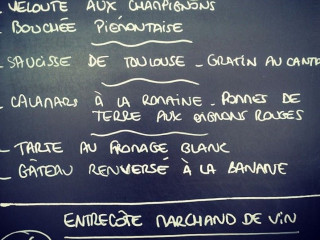 - VELOUTÉ AUX CHAMPIGNONS
- BOUCHÉE PIÉMONTAISE
- SAUCISSE DE TOULOUSE - GRATIN AU CANTA
- CALAMARS À LA ROMAINE - POMMES DE
TERRE AUX OIGNONS ROUGES
- TARTE AU FROMAGE BLANC
- GÂTEAU RENVERSÉ À LA BANANE
ENTRECÔTE MARCHAND DE VIN